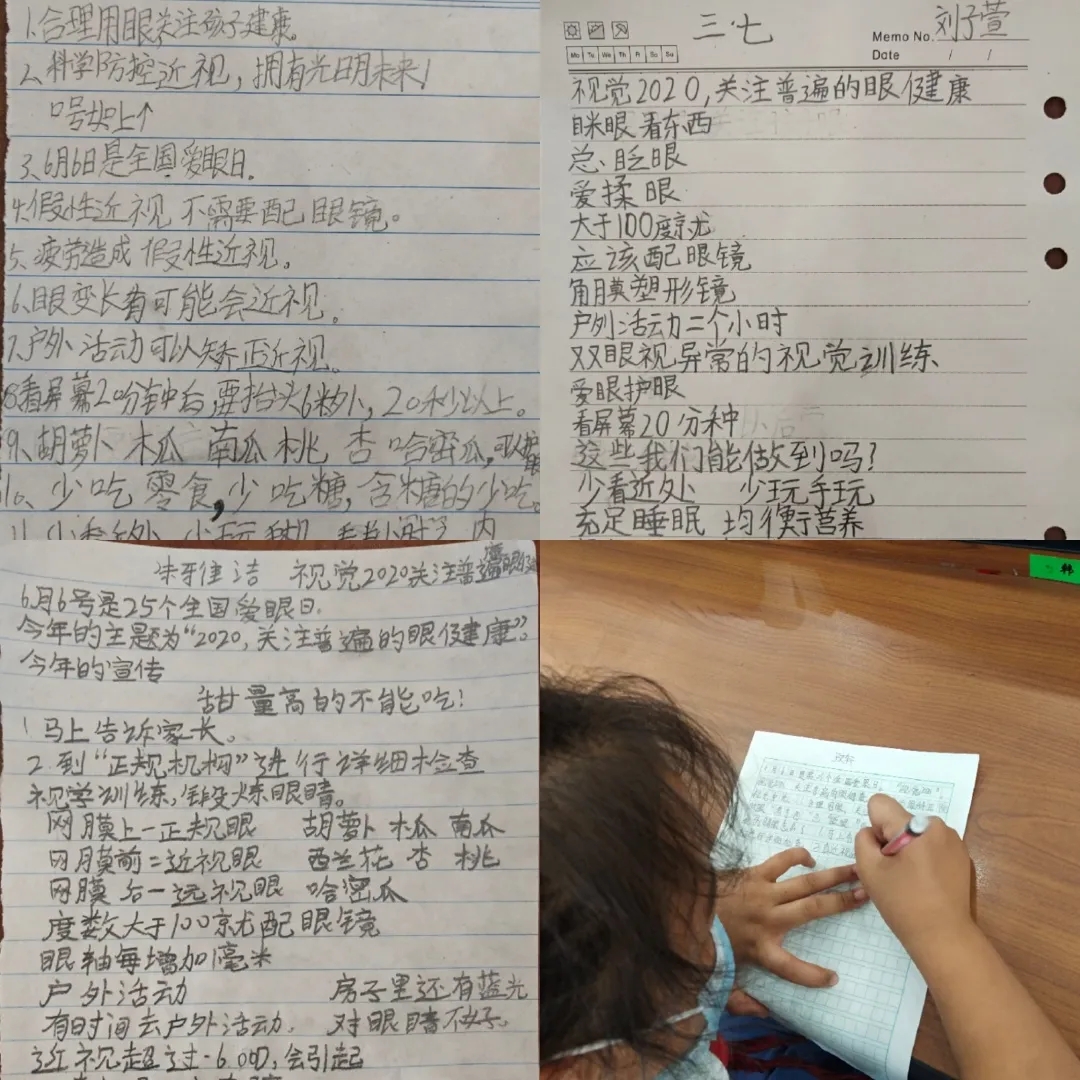 1.合理用眼关注孩子健康。
2、科学防控近视，拥有光明未来！
口号如上↑
3、6月6日是全国爱眼日.
4.假性近视不需要配眼镜。
5、疲劳造成假性近视。
6、眼变长有可能会近视.
7.户外活动可以矫正近视。
8看屏幕20分钟中后,要抬头6米外,20秒以上。
9、胡萝卜 木瓜 南瓜 桃 杏 哈密瓜,可以护眼
10、少吃零食,少吃糖,含糖的少吃
三·七
Memo No. 刘子萱
Mo Tu We Th Fr Sa Su
Date / /
视觉2020,关注普遍的眼健康
眯眼看东西
总、眨眼
爱揉眼
大于100度就
应该配眼镜
角膜塑形镜
户外活动二个小时
双眼视异常的视觉训练
爱眼护眼
看屏幕20分种
这些我们能做到吗?
少看近处 少玩手玩
充足睡眠 均衡营养
佳洁 视觉2020关注普遍眼健
6月6号是25个全国爱眼日.
今年的主题为“2020,关注普遍的眼健康”。
今年的宣传
甜量高的不能吃!
1马上告诉家长。
2.到“正规机构”进行详细检查
视学训练,锻炼眼睛。
网膜上一正规眼 胡萝卜 木瓜 南瓜
网膜前二近视眼 西兰花 杏 桃
网膜后一远视眼 哈密瓜
度数大于100就配眼镜
眼轴每增加1毫米
户外活动 房子里还有蓝光
有时间去户外活动. 对眼睛不好。
近视超过-6.00D,会引起
韩